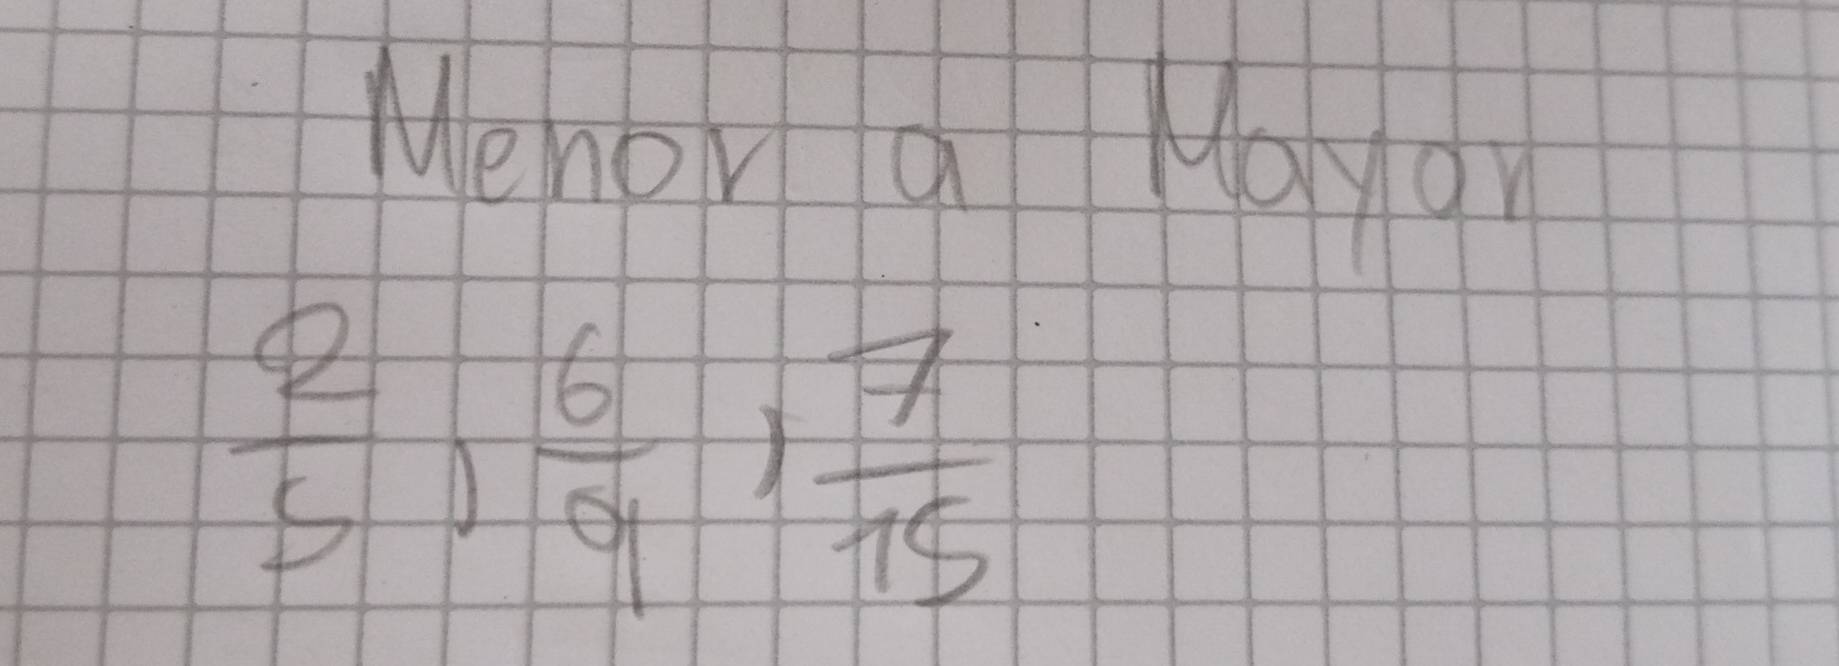 Menor a Mayor
2/5, 6/9, 7/15